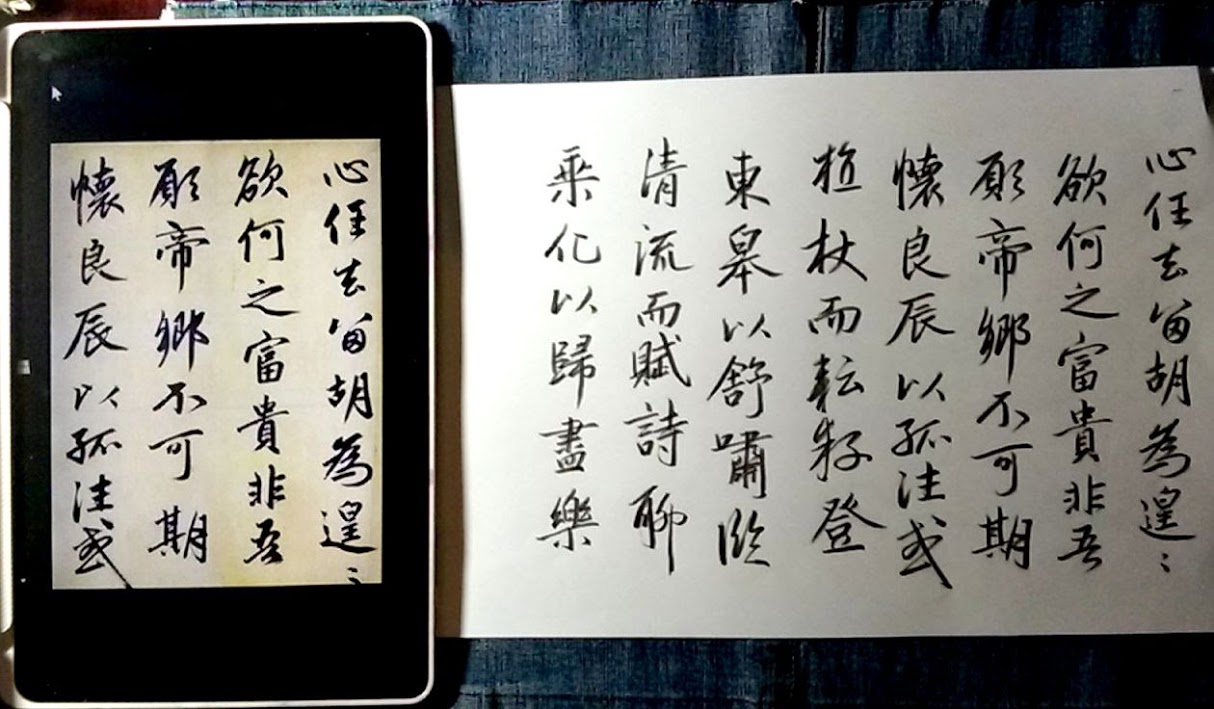 心任去留胡為遑〻
欲何之富貴非吾
願帝鄉不可期
懷良辰以孤往或
心任去留胡為遑〻
欲何之富貴非吾
願帝鄉不可期
懷良辰以孤往或
植杖而耘耔登
東皋以舒嘯臨
清流而賦詩聊
乘化以歸盡樂